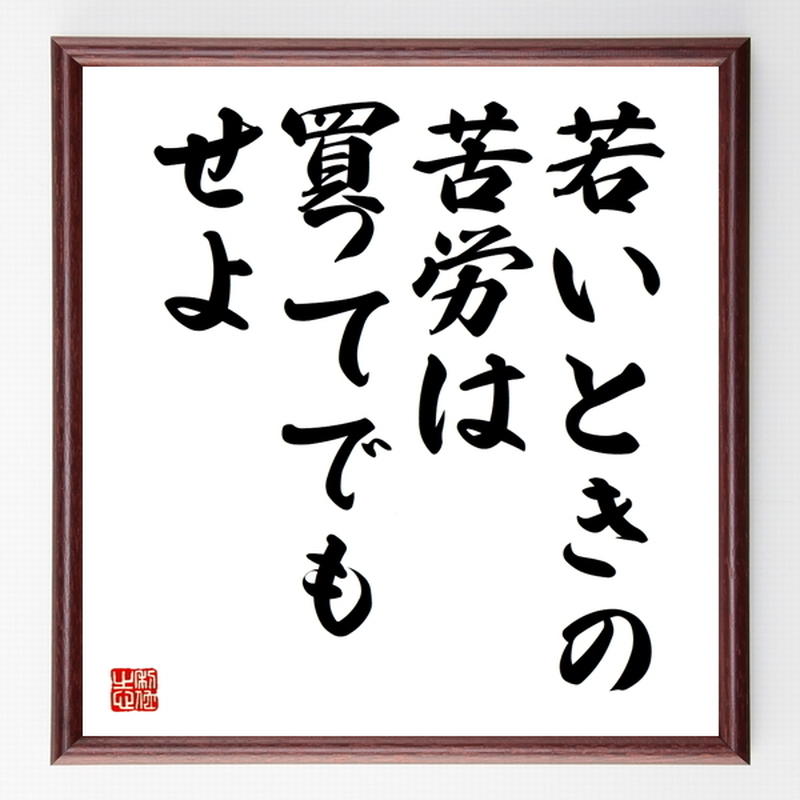 若いときの
苦労は
買ってでも
せよ